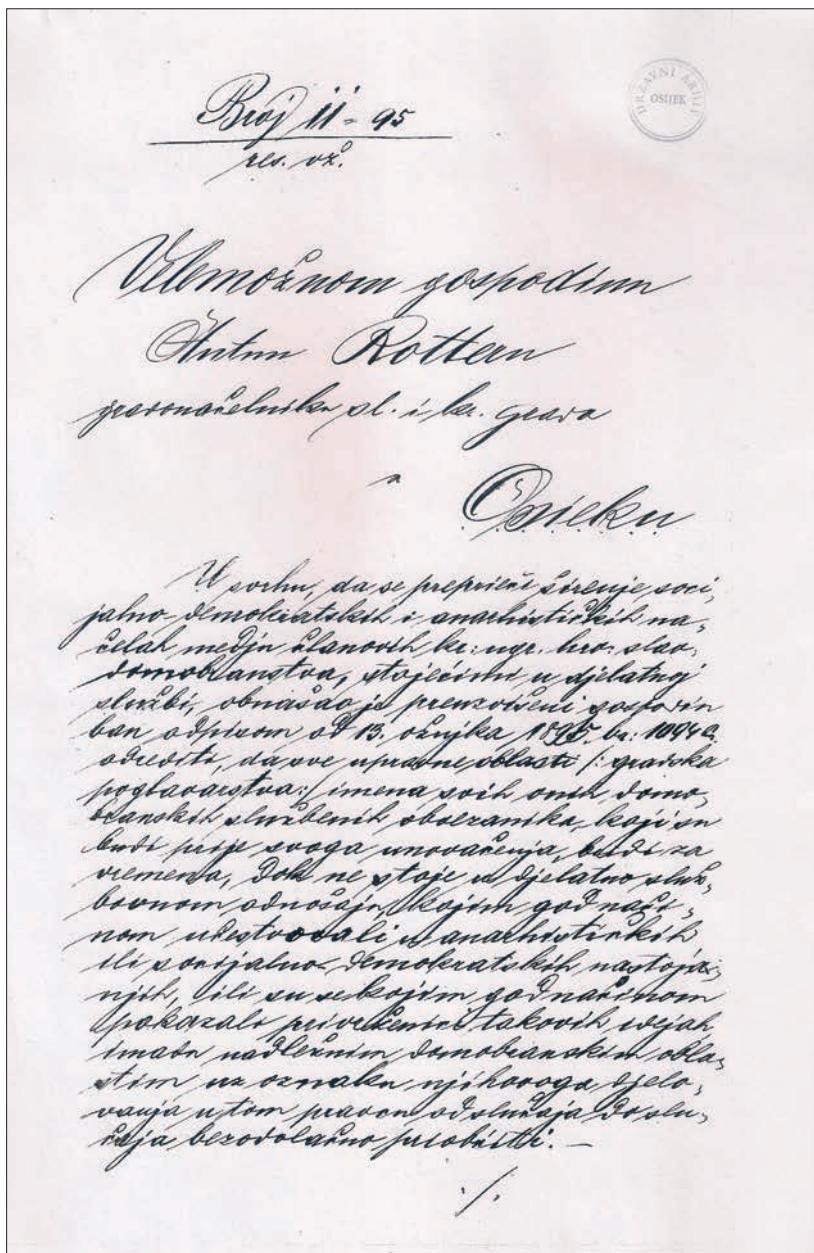 Broj 11-95
res. vž.
DRŽAVNI ARHIV
OSIJEK
Velemožnom gospodinu
Antun Rotteru
gradonačelniku sl. i kr. grada
u
Osieku
U svrhu, da se prepriči širenje soci-
jalno-demokratskih i anarhističkih na-
čelah medju članovih kr: ugr. hrv: slav.
domobranstva, stojećimi u djelatnoj
službi, obnašao je preuzvišeni gospodin
ban odpisom od 13. ožujka 1895. br: 1094
odrediti, da sve upravne oblasti /: gradska
poglavarstva:/ imena svih onih domo-
branskih službenih obvezanika, koji su
budi prije svoga unovačenja, budi za
vremena, dok ne stoje u djelatno služ-
bovnom odnošaju, kojim god nači-
nom učestvovali u anarhističkih
ili socijalno-demokratskih nastoja-
njih, ili su se kojim god načinom
pokazali privrženici takovih idejah,
imadu nadležnim domobranskim obla-
stim uz oznaku njihovoga djelo-
vanja u tom pravcu od slučaja do slu-
čaja bezodvlačno priobćiti. —
./.